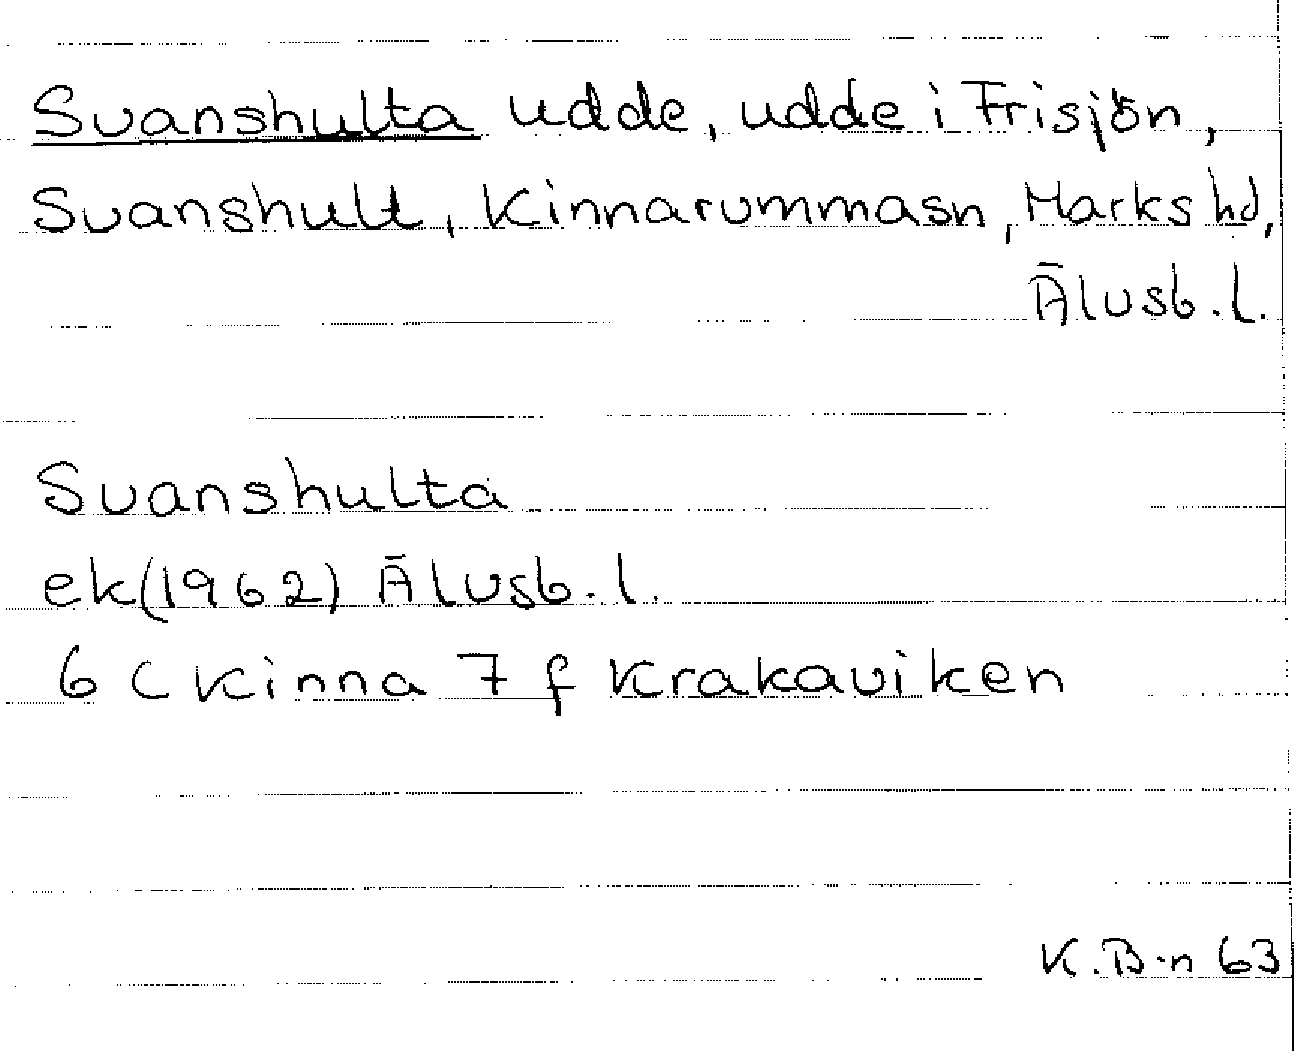 Svanshulta udde, udde i Frisjön,
Svanshult, Kinnarummasn, Marks hd,
Älvsb. l.
Svanshulta
ek(1962) Älvsb. l.
6 C Kinna 7 f Krakaviken
K.B-n 63